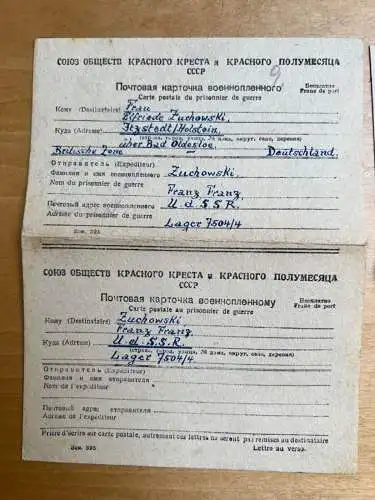 СОЮЗ ОБЩЕСТВ КРАСНОГО КРЕСТА и КРАСНОГО ПОЛУМЕСЯЦА
СССР
9
Почтовая карточка военнопленного
Carte postale du prisonnier de guerre
Бесплатно
Franc de port
Кому (Destinataire) Frau
Elfriede Zuchowski,
Куда (Adresse) Itzstedt/Holstein,
(страна, город, улица, № дома, округ, село, деревня)
über Bad Oldesloe.
Britische Zone Deutschland.
Отправитель (Expéditeur)
Фамилия и имя военнопленного Zuchowski,
Nom du prisonnier de guerre
Franz Franz,
Почтовый адрес военнопленного U.d.S.S.R.
Adresse du prisonnier de guerre
Lager 7504/4
Зак. 395
СОЮЗ ОБЩЕСТВ КРАСНОГО КРЕСТА и КРАСНОГО ПОЛУМЕСЯЦА
СССР
Почтовая карточка военнопленному
Carte postale au prisonnier de guerre
Бесплатно
Franc de port
Кому (Destinataire) Zuchowski
Franz Franz,
Куда (Adresse) U.d.S.S.R.
(страна, город, улица, № дома, округ, село, деревня)
Lager 7504/4
Отправитель (Expéditeur)
Фамилия и имя отправителя
Nom de l'expéditeur
Почтовый адрес отправителя
Adresse de l'expéditeur
Prière d'écrire sur carte postale, autrement ces lettres ne seront pas remises au destinataire
Зак. 395
Lettre au verso.